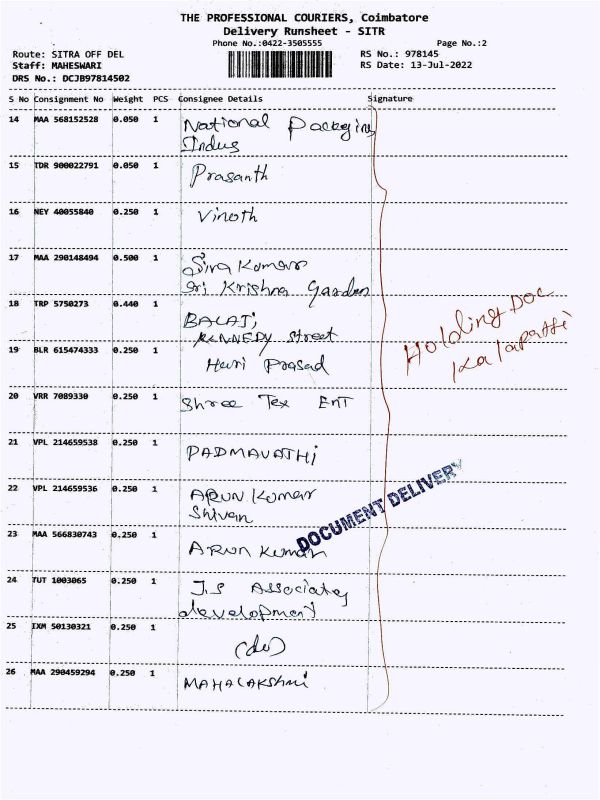 THE PROFESSIONAL COURIERS, Coimbatore
Delivery Runsheet - SITR
Phone No.:0422-3505555 Page No.:2
Route: SITRA OFF DEL RS No.: 978145
Staff: MAHESWARI RS Date: 13-Jul-2022
DRS No.: DCJB97814502
S No Consignment No Weight PCS Consignee Details Signature
14 MAA 568152528 0.050 1 National Packaging
Indus
15 TDR 900022791 0.050 1 Prasanth
16 NEY 40055840 0.250 1 Vinoth
17 MAA 290148494 0.500 1 Siva Kumar
Sri Krishna Garden
18 TRP 5750273 0.440 1 BALAJI,
KENNEDY street
19 BLR 615474333 0.250 1 Hari Prasad
20 VRR 7089330 0.250 1 Shree Tex ENT
21 VPL 214659538 0.250 1 PADMAVATHI
22 VPL 214659536 0.250 1 ARUN Kumar
Shivan
23 MAA 566830743 0.250 1 ARUN Kumar
24 TUT 1003065 0.250 1 J.S Associates
development
25 IXM 50130321 0.250 1 (do)
26 MAA 290459294 0.250 1 MAHALAKSHMI
Holding Doc
Kalapatti
DOCUMENT DELIVERY